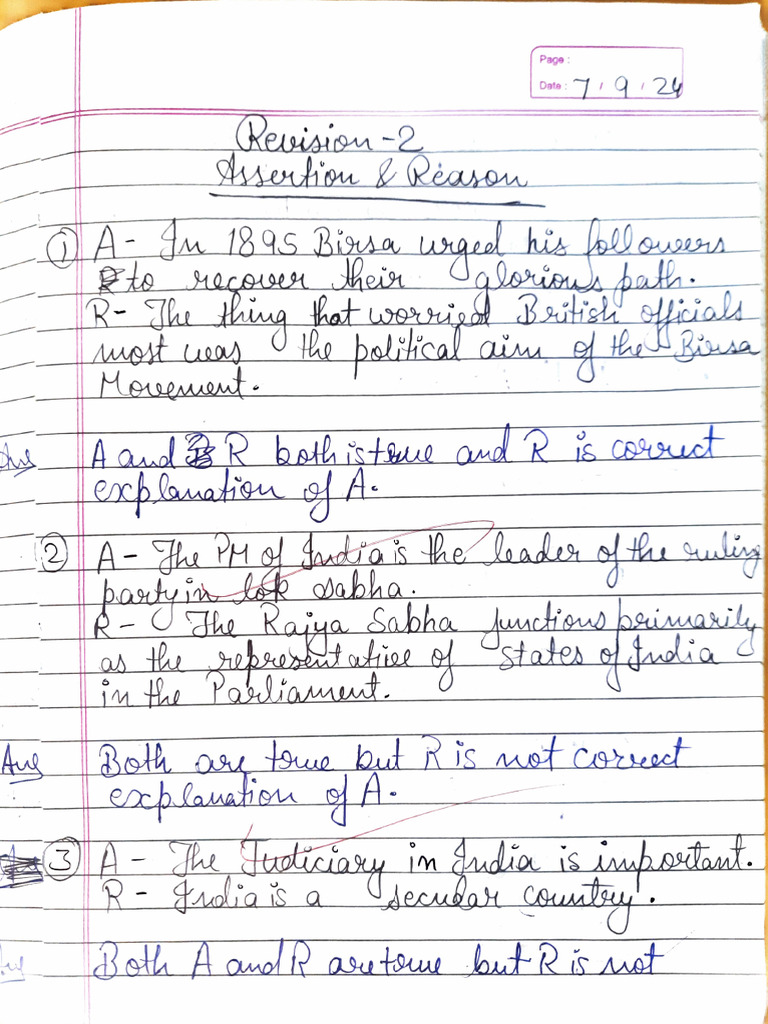 Page :
Date : 7 / 9 / 24
Revision - 2
Assertion & Reason
① A - In 1895 Birsa urged his followers
to recover their glorious path.
R - The thing that worried British officials
most was the political aim of the Birsa
Movement.
Ans A and R both is true and R is correct
explanation of A.
② A - The PM of India is the leader of the ruling
party in lok sabha.
R - The Rajya Sabha functions primarily
as the representative of states of India
in the Parliament.
Ans Both are true but R is not correct
explanation of A.
③ A - The Judiciary in India is important.
R - India is a secular country.
Both A and R are true but R is not